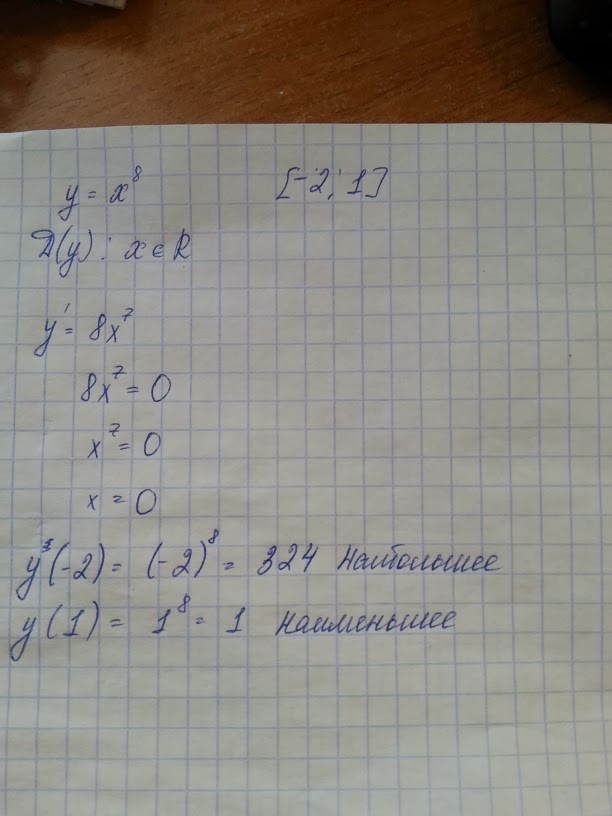 y = x⁸ [-2; 1]
D(y): x ∈ R
y' = 8x⁷
8x⁷ = 0
x⁷ = 0
x = 0
y(-2) = (-2)⁸ = 324 Наибольшее
y(1) = 1⁸ = 1 Наименьшее